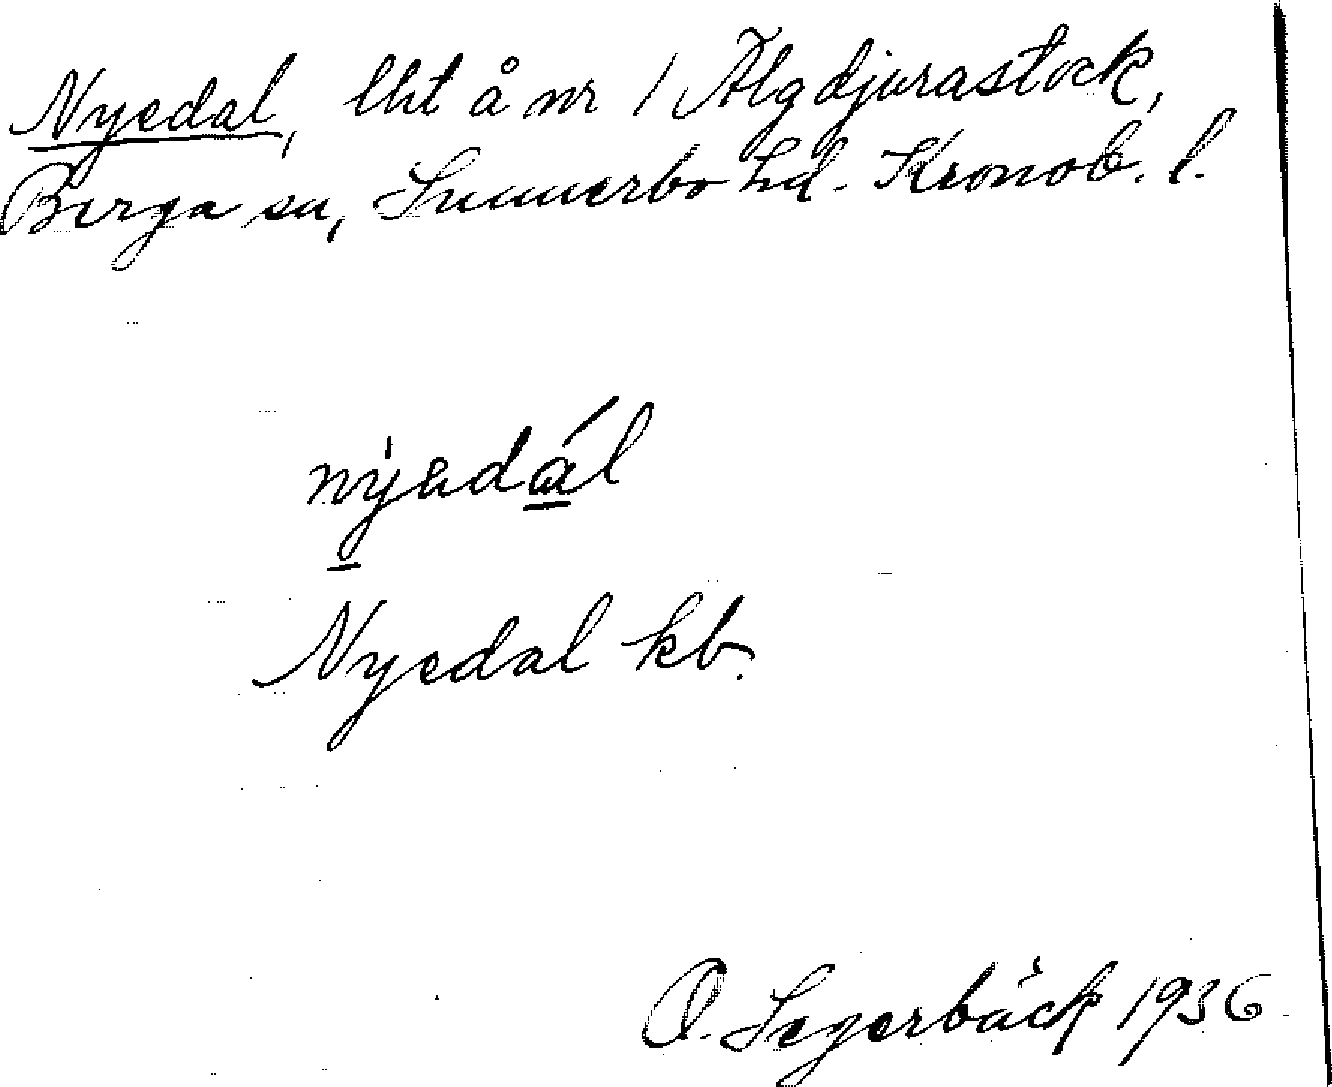 Nyedal, lht å nr 1 Älgdjurastock,
Berga sn, Sunnerbo hd. Kronob. l.
nyadál
Nyedal kb.
O. Segerbäck 1936